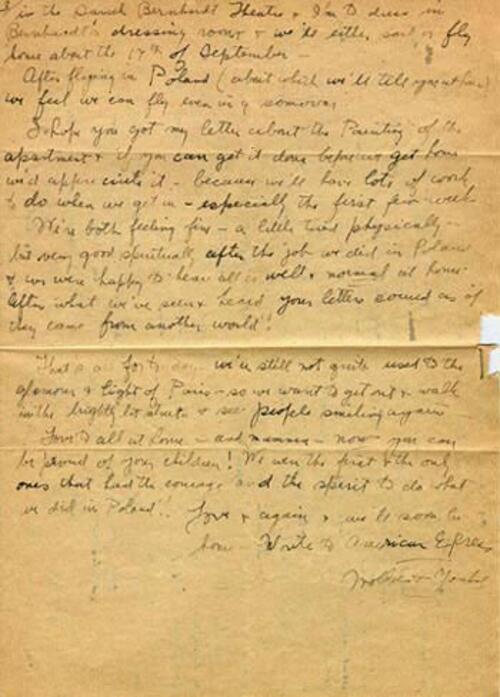 is in the Sarah Bernhardt Theatre & I'm to dress in
Bernhardt's dressing room & we'll either sail or fly
home about the 17th of September –
After flying in Poland (about which we'll tell you at home)
we feel we can fly even in a
I hope you got my letter about the Painting of the
apartment & if you can get it done before we get home
we'd appreciate it – because we'll have lots of work
to do when we get in – especially the first few weeks
We're both feeling fine – a little tired physically –
but very good spiritually after the job we did in Poland
& we were happy to hear all is well & normal at home
After what we've seen & heard your letters sound as if
they came from another world!
That's all for to day we're still not quite used to the
glamour & light of Paris – so we want to get out & walk
in the brightly lit streets & see people smiling again
Love to all at home – and mamma – now you can
be proud of your children! We were the first & the only
ones that had the courage and the spirit to do what
we did in Poland!! Love & again & we'll soon be
home – Write to American Express